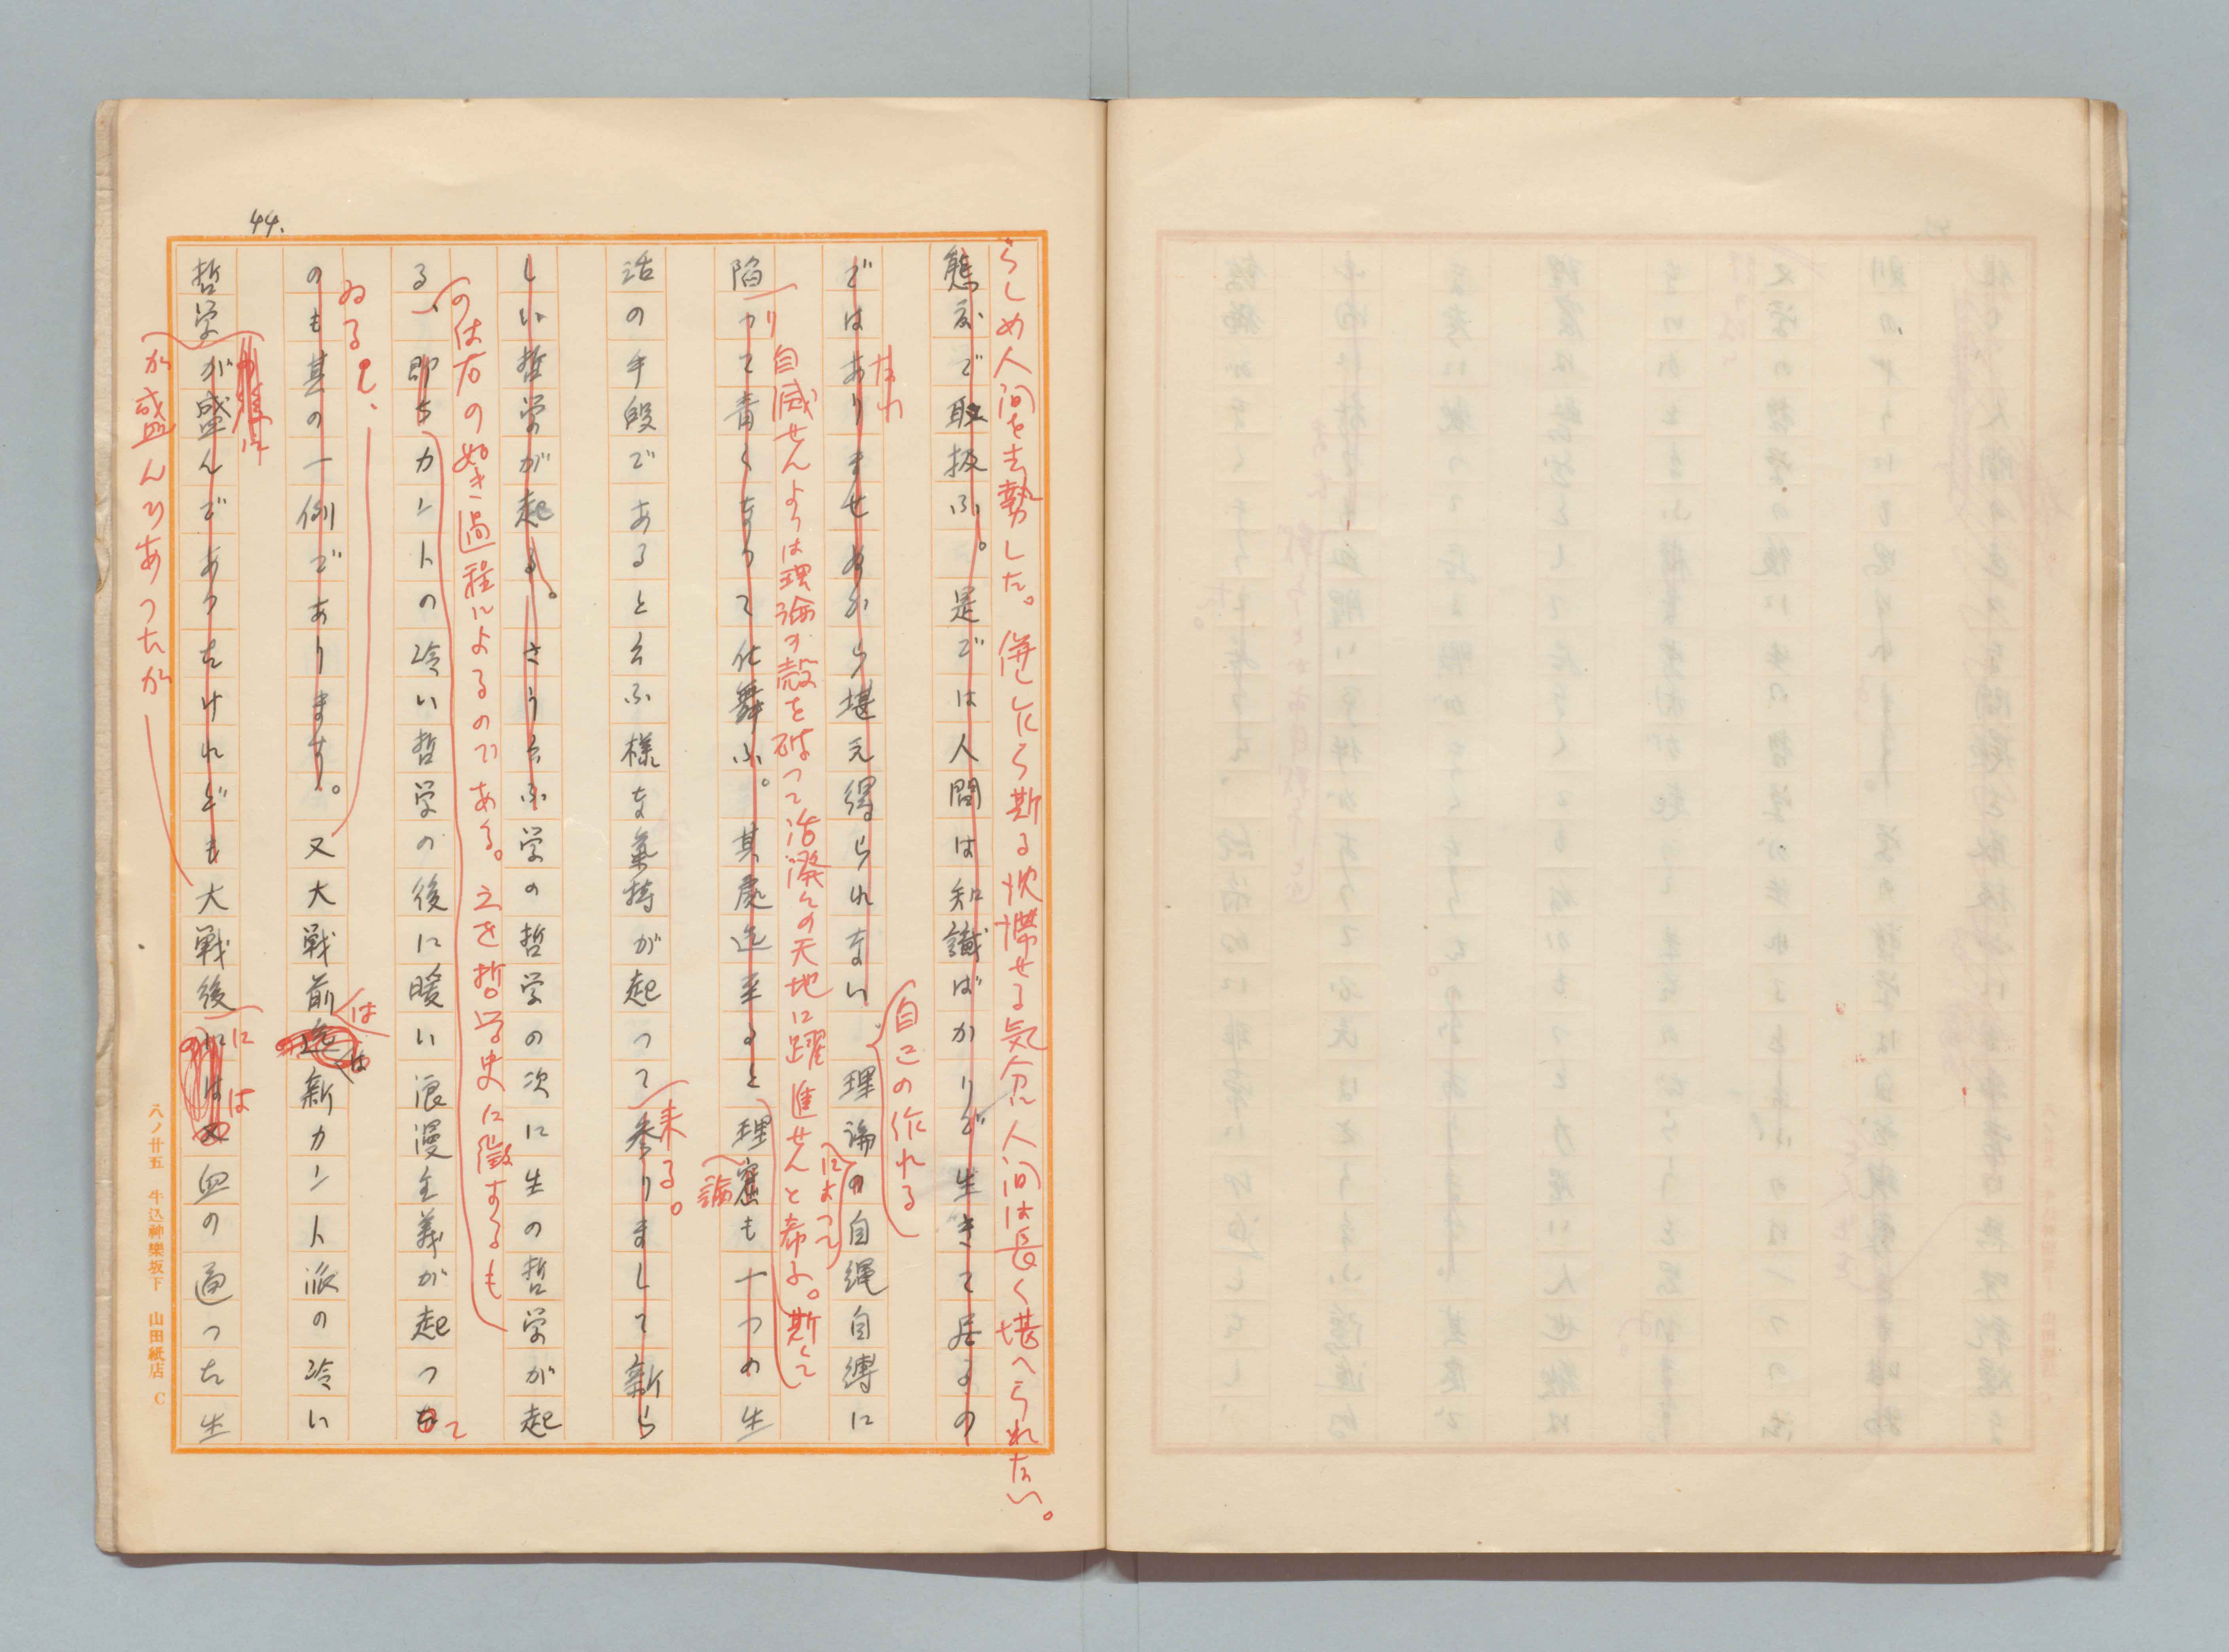 44.
らしめ人間を去勢した。併し乍ら斯る沈滞せる気分に人間は長く堪へられない。
態度で取扱ふ。是では人間は知識ばかりで生きて居るの
ではありませぬから堪え得られない 理論の自縄自縛に
なわ
自己の作れる
によつて
陥つて青くなつて仕舞ふ。其處迄至ると理窟も一つの生
り自滅せんよりは理論の殻を破つて活溌々の天地に躍進せんと希ふ。斯くて
論
活の手段であると云ふ様な氣持が起つて参りまして新ら
来る。
しい哲学が起る。さう云ふ学の哲学の次に生の哲学が起
のは右の如き過程によるのである。之を哲学史に徴するも
る、即ちカントの冷い哲学の後に暖い浪漫主義が起つた
て
ゐる。
のも其の一例であります。又大戦前迄新カント派の冷い
は
は
哲学が盛んであつたけれども大戦後には血の通つた生
に
は
が盛んであつたが
八ノ廿五 牛込神樂坂下 山田紙店 C